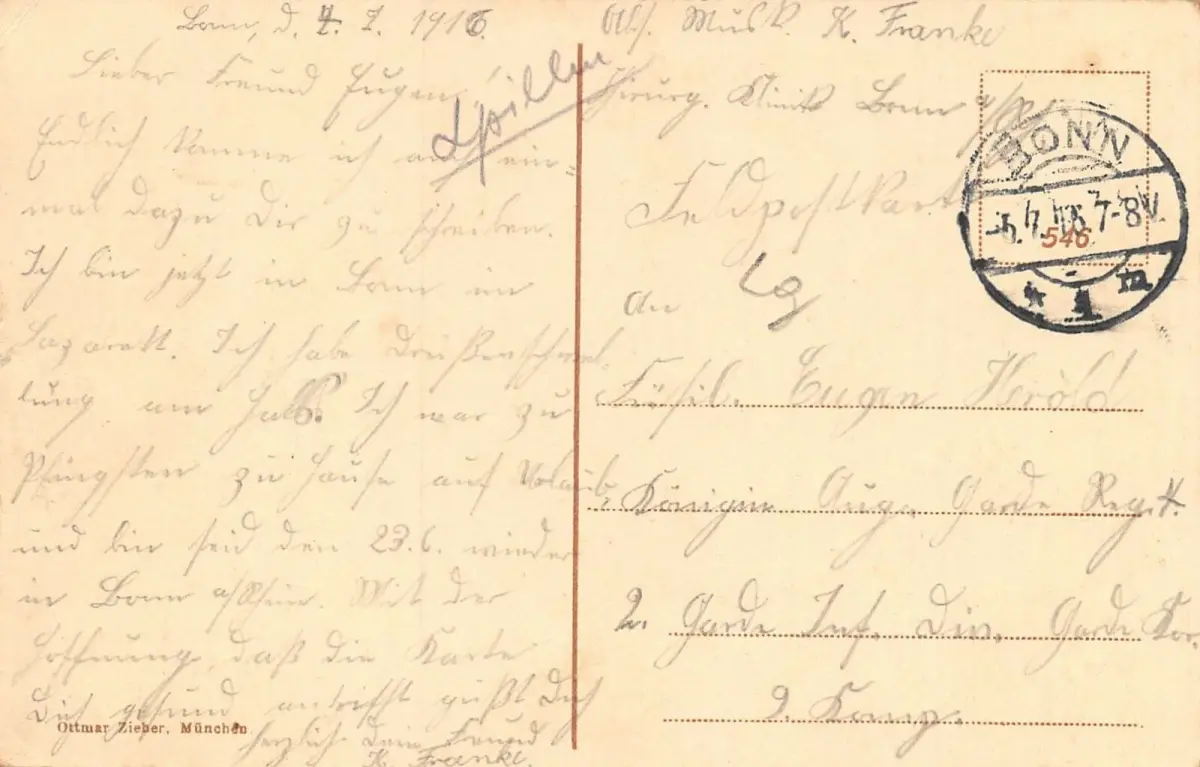 Bonn, d. 4. 7. 1916.
Lieber Freund Eugen!
Endlich komme ich auch ein-
mal dazu Dir zu schreiben.
Ich bin jetzt in Bonn im
Lazarett. Ich habe Drüßenschwel-
lung am Hals. Ich war zu
Pfingsten zu Hause auf Urlaub
und bin seid den 23.6. wieder
in Bonn a/Rhein. Mit der
Hoffnung, daß die Karte
Dich gesund antrifft grüßt Dich
herzlich Dein Freund
K. Franke.
Ottmar Zieher, München
Abs. Musk. K. Franke
Chirurg. Klinik Bonn a/Rh.
Feldpostkarte
An
Füsil. Eugen Herold
Königin Aug. Garde Reg. 4.
2. Garde Inf. Div. Garde Kor.
9. Komp.
BONN
7-8V.
546